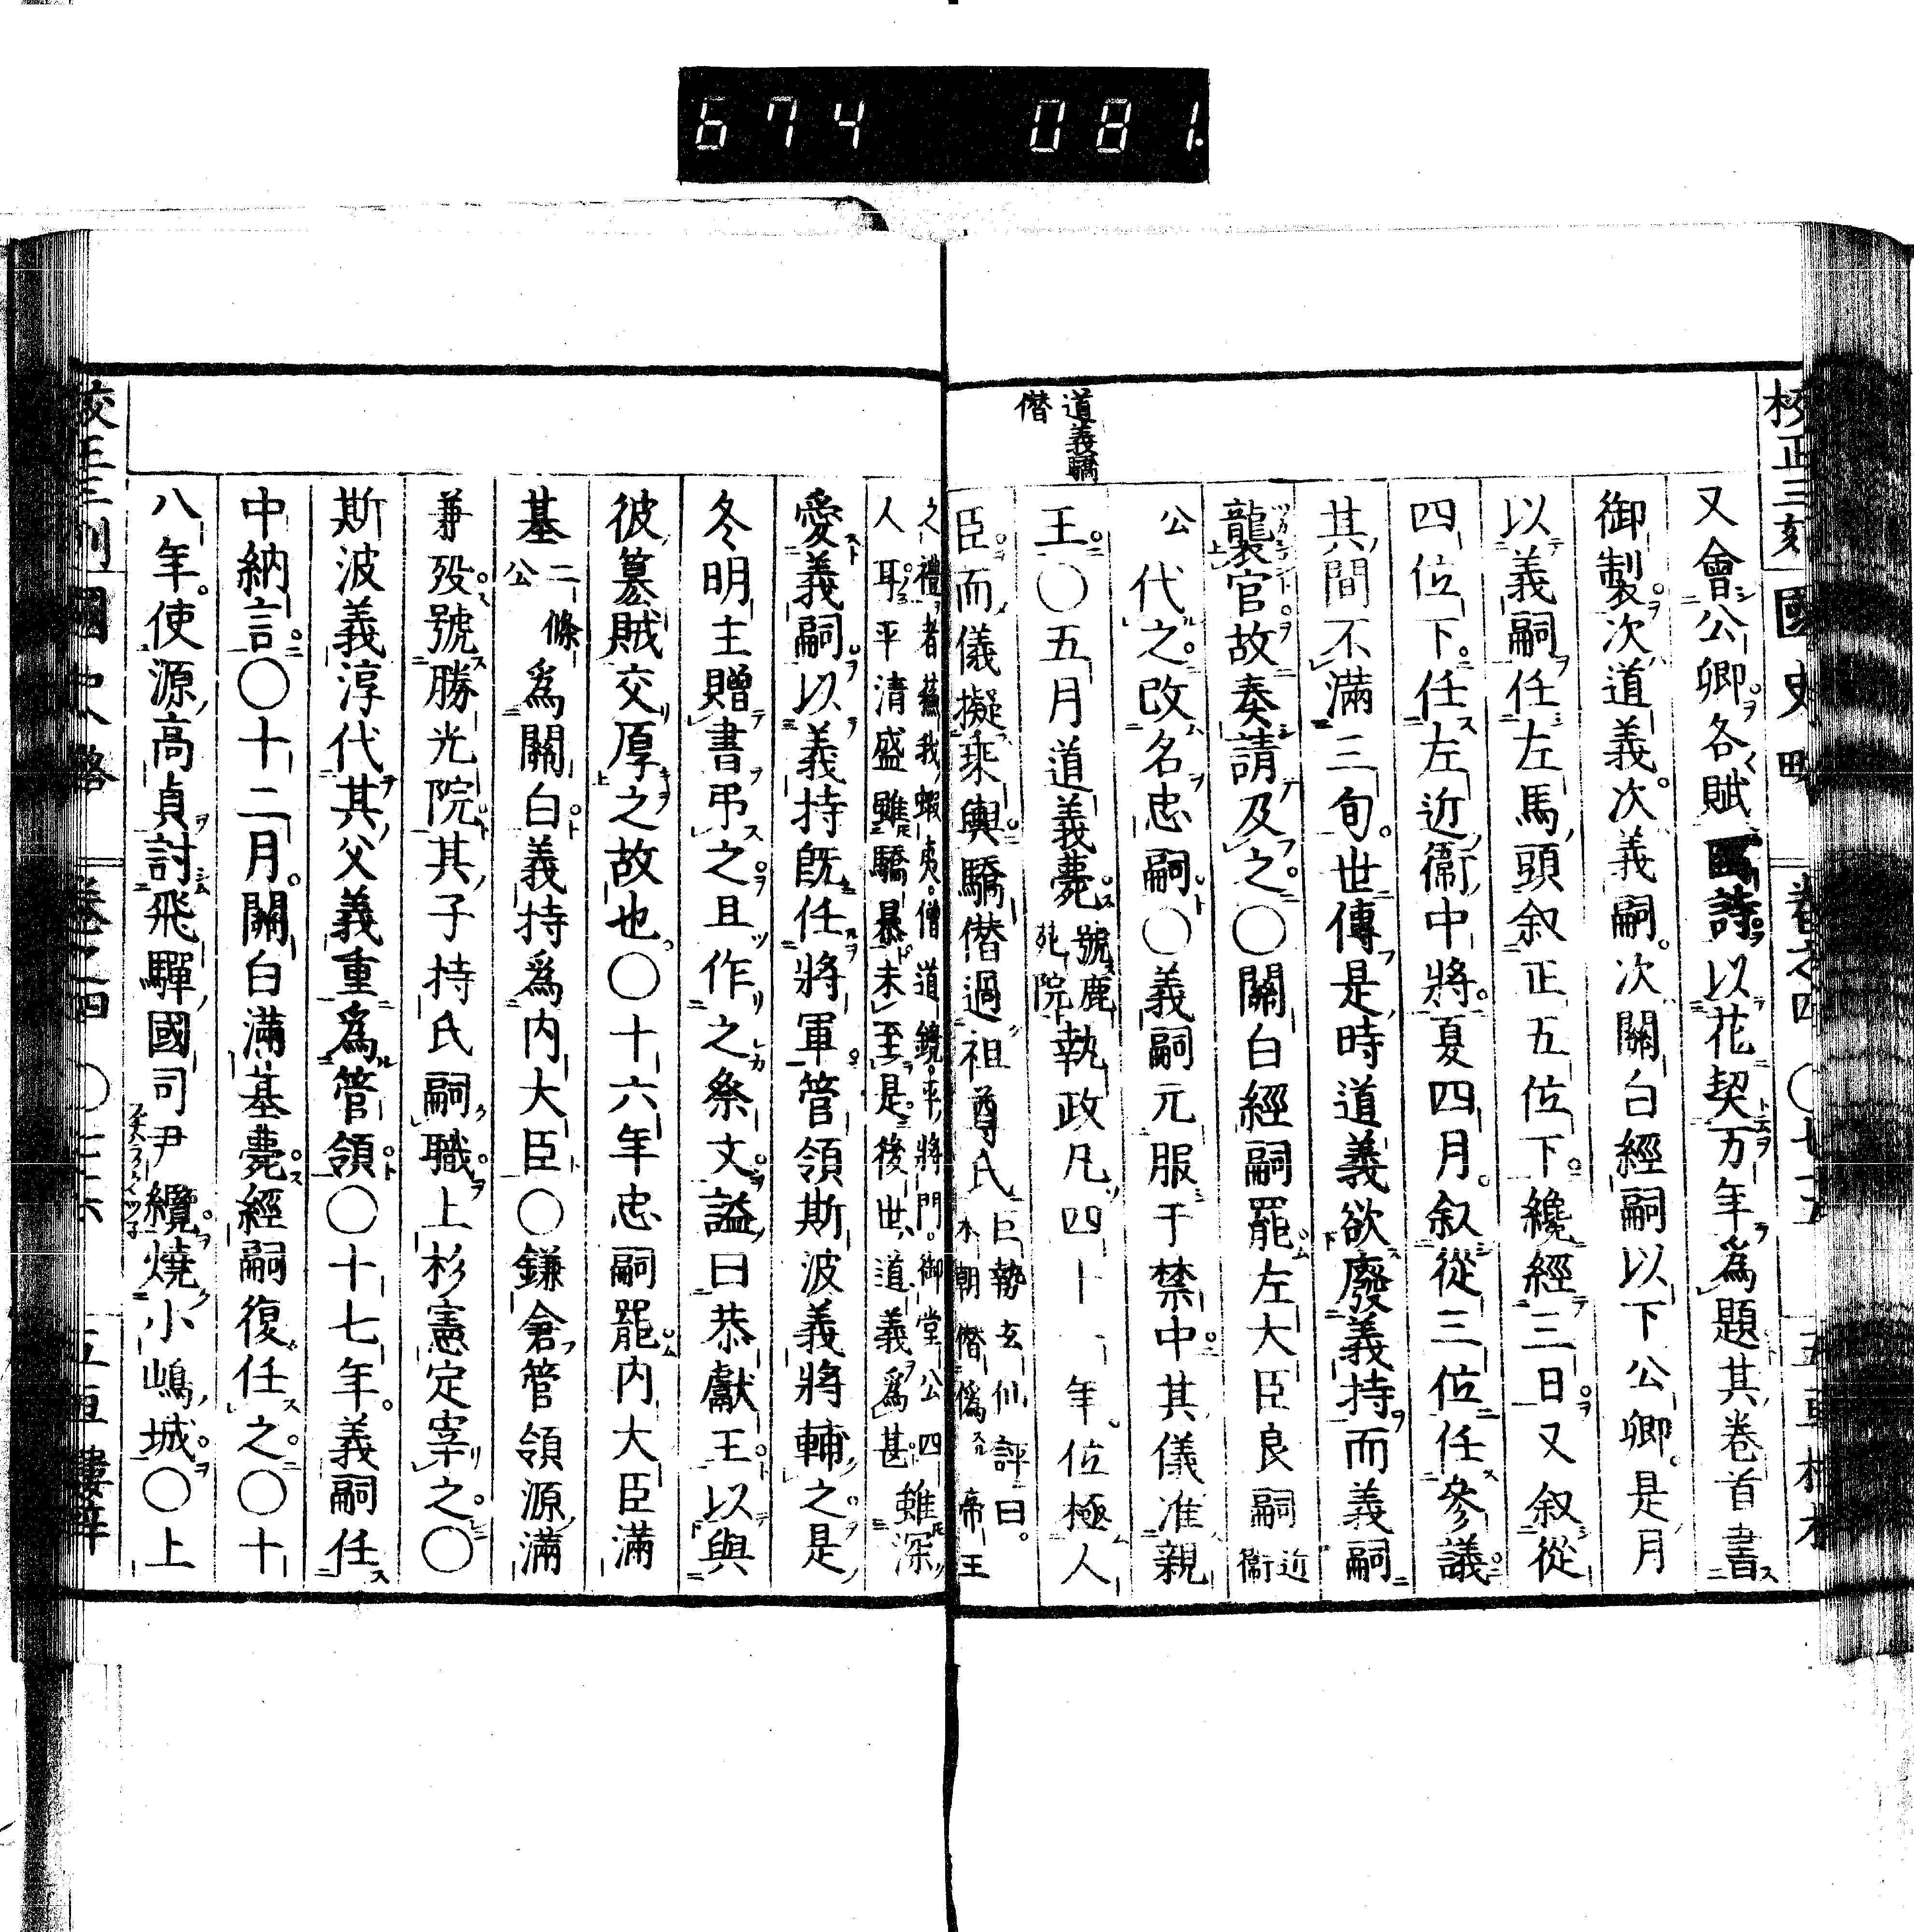 674 081.
校正三刻 國史略 卷之四 ○七十五 五車樓梓
又會公卿各賦國詩以花契万年爲題其卷首書
御製次道義次義嗣次關白經嗣以下公卿是月
以義嗣任左馬頭叙正五位下纔經三日又叙從
四位下任左近衞中將夏四月叙從三位任參議
其間不滿三旬世傳是時道義欲廢義持而義嗣
襲官故奏請及之○關白經嗣罷左大臣良嗣近衞
公代之改名忠嗣○義嗣元服于禁中其儀准親
道義驕僣
王○五月道義薨號鹿苑院執政凡四十一年位極人
臣而儀擬乘輿驕僣過祖尊氏巨勢玄仙評曰本朝僣僞帝王
之禮者蘇我蝦夷僧道鏡平將門御堂公四
人耳平清盛雖驕暴未至是後世道義爲甚雖深
愛義嗣以義持既任將軍管領斯波義將輔之是
冬明主贈書弔之且作之祭文謚曰恭獻王以與
彼墓賊交厚之故也○十六年忠嗣罷内大臣滿
基二條公爲關白義持爲内大臣○鎌倉管領源滿
兼殁號勝光院其子持氏嗣職上杉憲定宰之○
斯波義淳代其父義重爲管領○十七年義嗣任
中納言○十二月關白滿基薨經嗣復任之○十
八年使源高貞討飛騨國司尹纜燒小嶋城○上
校正三刻 國史略 卷之四 五車樓梓